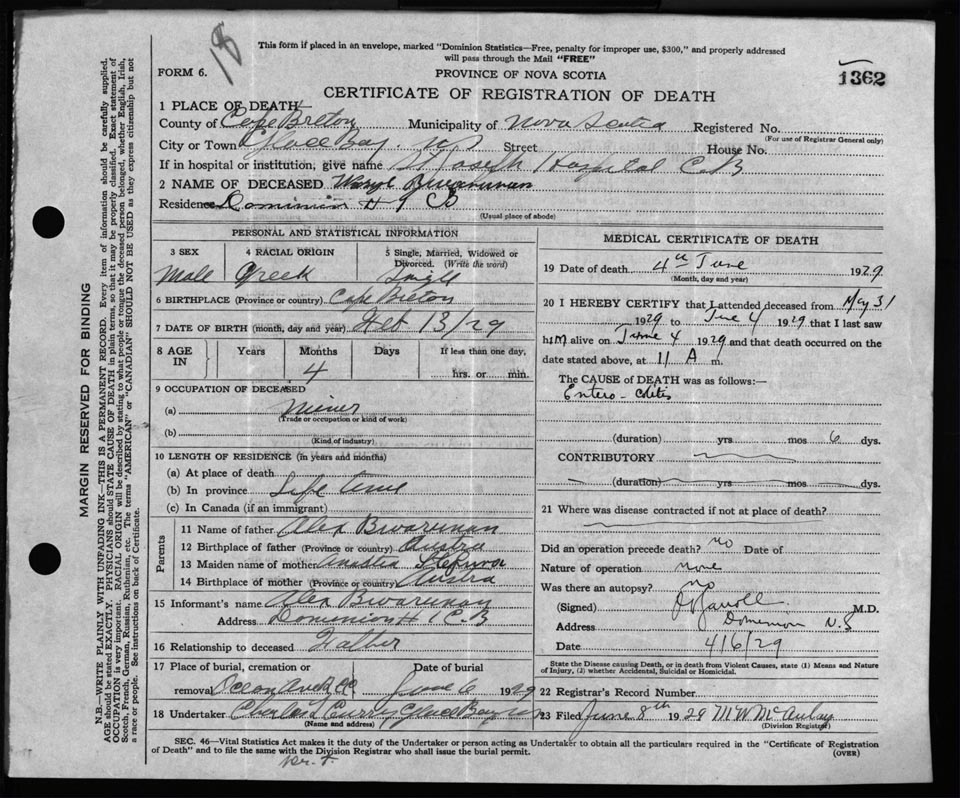 18
This form if placed in an envelope, marked "Dominion Statistics—Free, penalty for improper use, $300," and properly addressed
will pass through the Mail "FREE"
FORM 6.
PROVINCE OF NOVA SCOTIA
1362
CERTIFICATE OF REGISTRATION OF DEATH
1 PLACE OF DEATH
County of Cape Breton Municipality of Nova Scotia Registered No.
(For use of Registrar General only)
City or Town Glace Bay N S Street House No.
If in hospital or institution, give name St Joseph Hospital C.B
2 NAME OF DECEASED
Residence Dominion # 9 CB
(Usual place of abode)
PERSONAL AND STATISTICAL INFORMATION
3 SEX
Male
4 RACIAL ORIGIN
Greek
5 Single, Married, Widowed or
Divorced. (Write the word)
Single
6 BIRTHPLACE (Province or country) Cape Breton
7 DATE OF BIRTH (month, day and year) Feb 13/29
8 AGE IN
Years
Months
4
Days
If less than one day,
hrs. or min.
9 OCCUPATION OF DECEASED
(a) Miner
(Trade or occupation or kind of work)
(b)
(Kind of industry)
10 LENGTH OF RESIDENCE (in years and months)
(a) At place of death
(b) In province Life time
(c) In Canada (if an immigrant)
Parents
11 Name of father Alex
12 Birthplace of father (Province or country) Austra
13 Maiden name of mother
14 Birthplace of mother (Province or country) Austra
15 Informant's name Alex
Address Dominion # 1 C.B
16 Relationship to deceased Father
17 Place of burial, cremation or
removal
Date of burial
June 6 1929
18 Undertaker Charles Curry Glace Bay
(Name and address)
MEDICAL CERTIFICATE OF DEATH
19 Date of death 4th June 1929
(Month, day and year)
20 I HEREBY CERTIFY that I attended deceased from May 31
1929 to June 4 1929 that I last saw
him alive on June 4 1929 and that death occurred on the
date stated above, at 11 A m.
The CAUSE of DEATH was as follows:—
Entero-colitis
(duration) yrs mos 6 dys.
CONTRIBUTORY
(duration) yrs mos dys.
21 Where was disease contracted if not at place of death?
Did an operation precede death? no Date of
Nature of operation none
Was there an autopsy? no
(Signed) M.D.
Address Dominion N.S
Date 4/6/29
State the Disease causing Death, or in death from Violent Causes, state (1) Means and Nature
of Injury, (2) whether Accidental, Suicidal or Homicidal.
22 Registrar's Record Number
23 Filed June 8th 1929 M W McAulay
(Division Registrar)
SEC. 46—Vital Statistics Act makes it the duty of the Undertaker or person acting as Undertaker to obtain all the particulars required in the "Certificate of Registration
of Death" and to file the same with the Division Registrar who shall issue the burial permit.
(OVER)
MARGIN RESERVED FOR BINDING
N.B.—WRITE PLAINLY WITH UNFADING INK—THIS IS A PERMANENT RECORD. Every item of information should be carefully supplied.
AGE should be stated EXACTLY. PHYSICIANS should STATE CAUSE OF DEATH in plain terms, so that it may be properly classified. Exact statement of
OCCUPATION is very important. RACIAL ORIGIN will be described by stating to what people or tongue the deceased person belonged, whether English, Irish,
Scotch, French, German, Russian, Ruthenian, etc. The terms "AMERICAN" or "CANADIAN" SHOULD NOT BE USED as they express citizenship but not
a race or people. See instructions on back of Certificate.